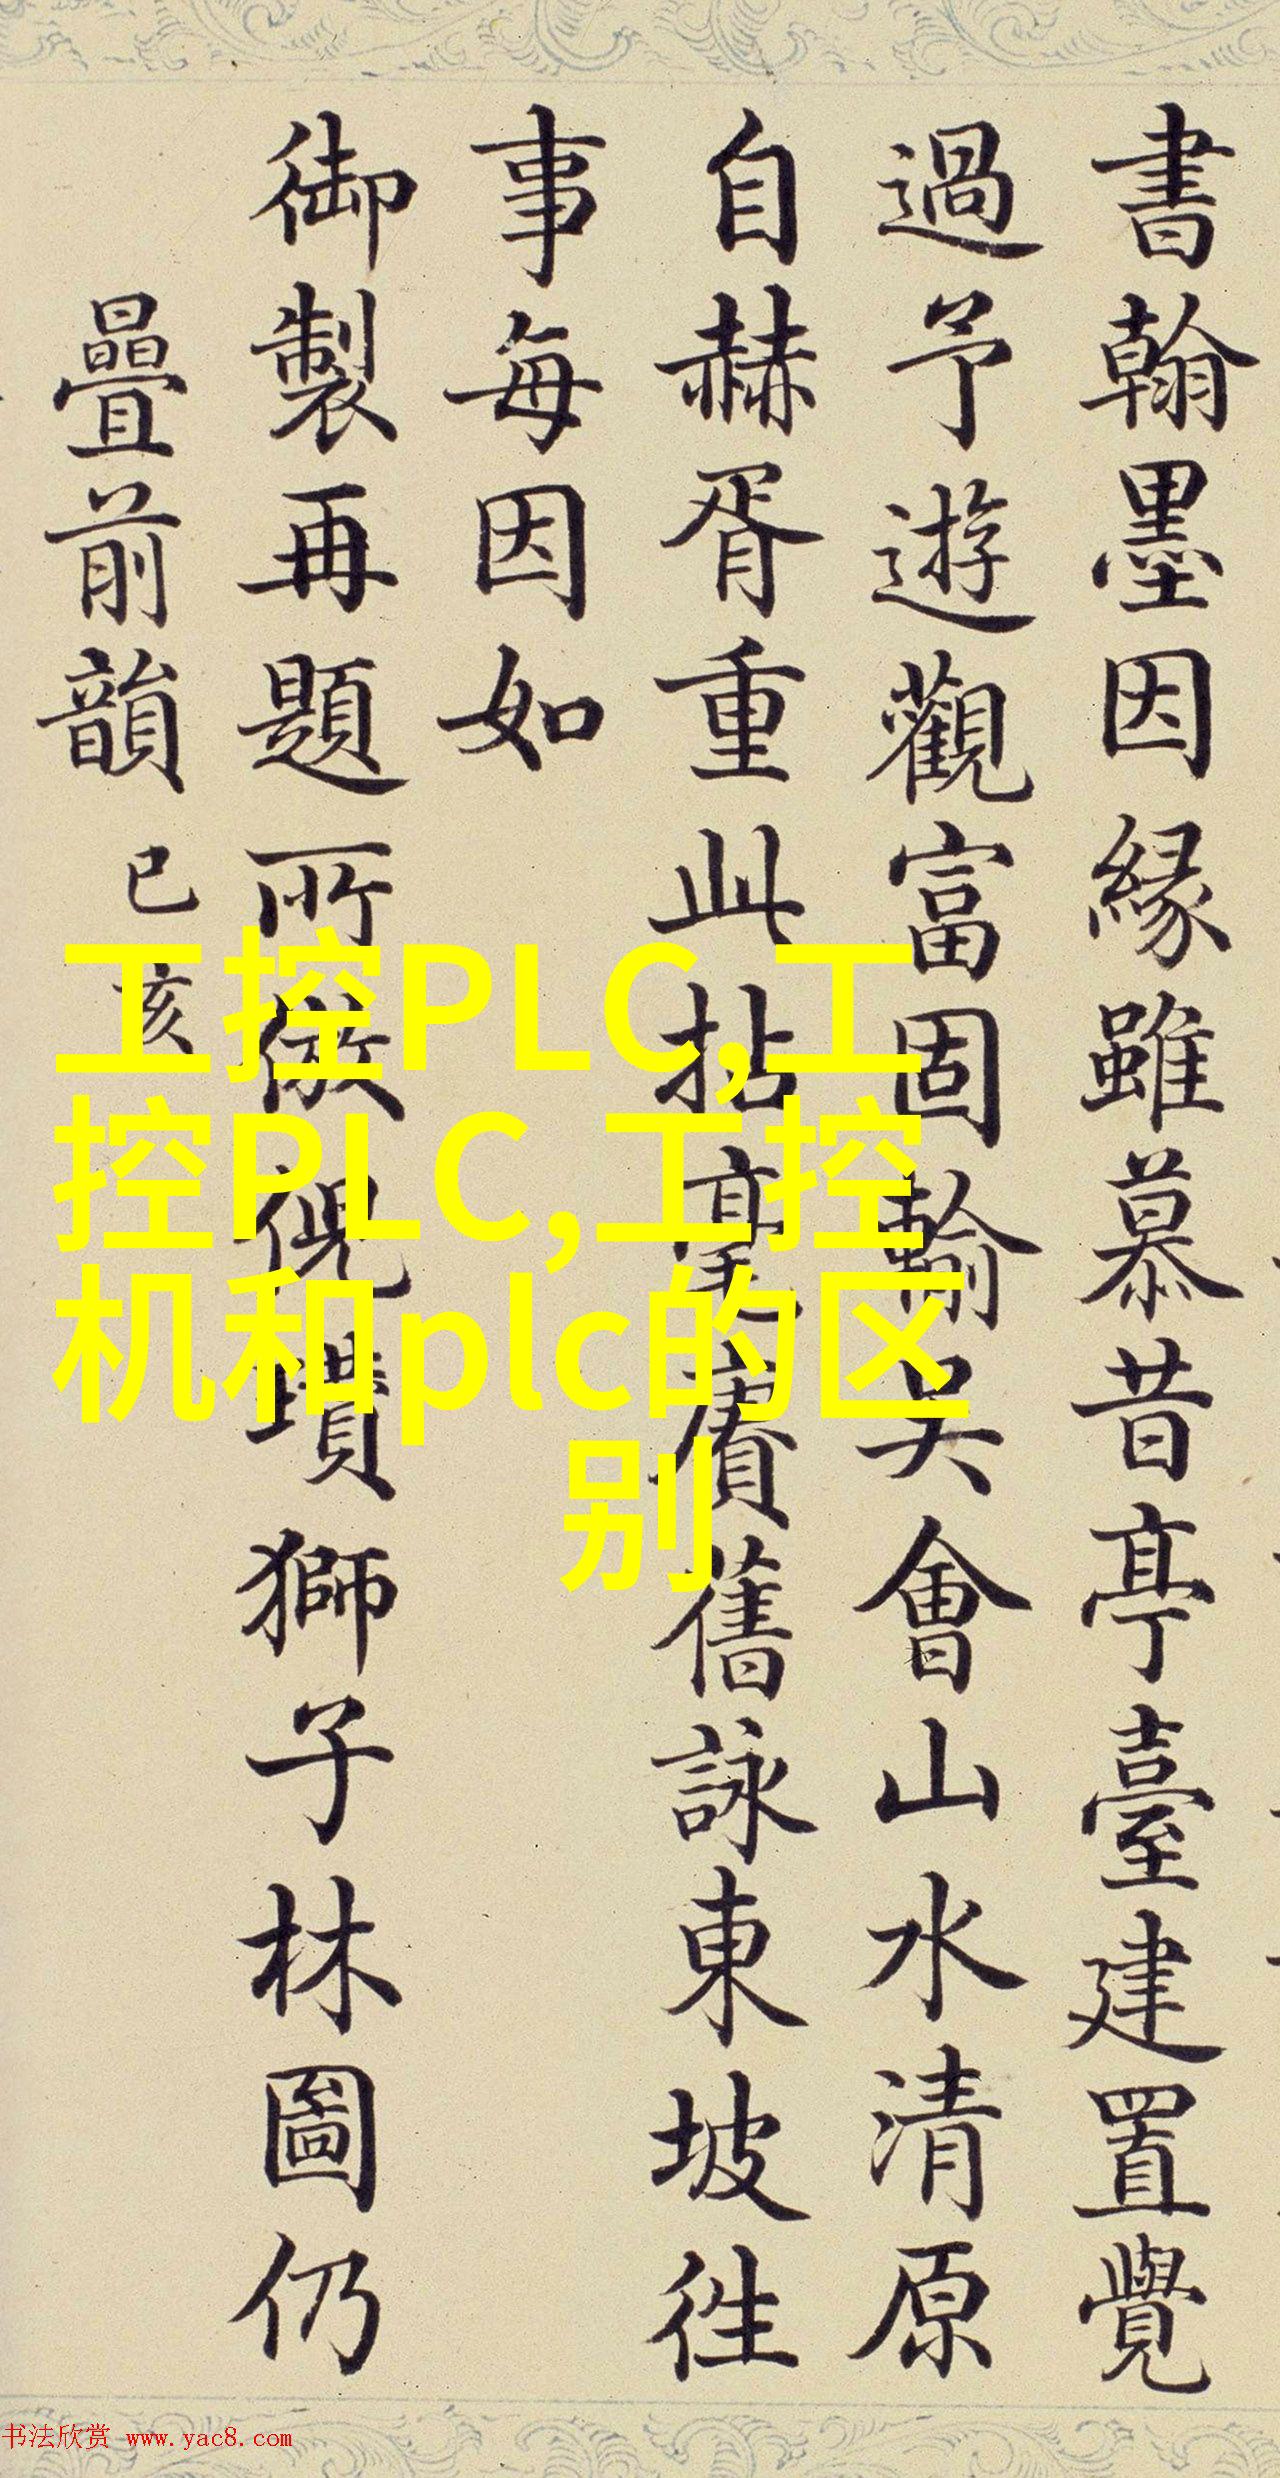 書翰墨因緣雖慕昔亭臺建置覺
過予遊觀富固輸吳會山水清原
自赫胥重此拈毫賡舊詠東坡徃
事每因如
御製再題所倣倪瓚獅子林圖仍
疊前韻 已亥
工控PLC,工
控PLC,工控
机和plc的区
别
书法欣赏 www.yac8.com